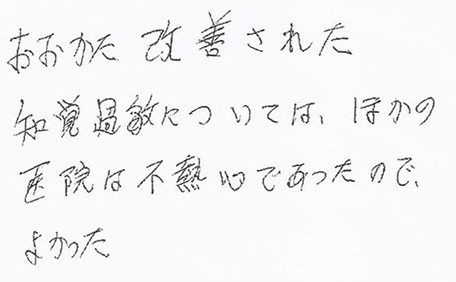 おおかた改善された
知覚過敏については、ほかの
医院は不熱心であったので、
よかった